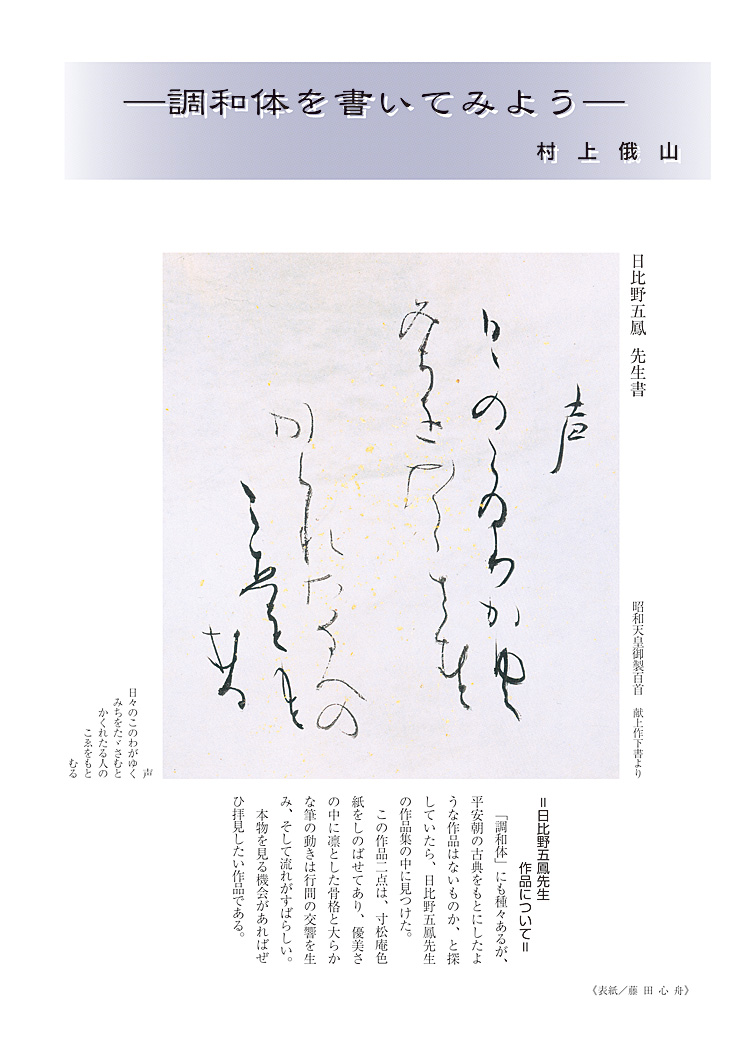 ―調和体を書いてみよう―
村上俄山
日比野五鳳 先生書
昭和天皇御製百首 献上作下書より
声
日々のこのわがゆく
みちをたゞさむと
かくれたる人の
こゑをもと
むる
声
日々のこのわがゆく
みちをたゞさむと
かくれたる人の
こゑをもと
むる
＝日比野五鳳先生
作品について＝
「調和体」にも種々あるが、
平安朝の古典をもとにしたよ
うな作品はないものか、と探
していたら、日比野五鳳先生
の作品集の中に見つけた。
この作品二点は、寸松庵色
紙をしのばせてあり、優美さ
の中に凛とした骨格と大らか
な筆の動きは行間の交響を生
み、そして流れがすばらしい。
本物を見る機会があればぜ
ひ拝見したい作品である。
《表紙／藤田心舟》